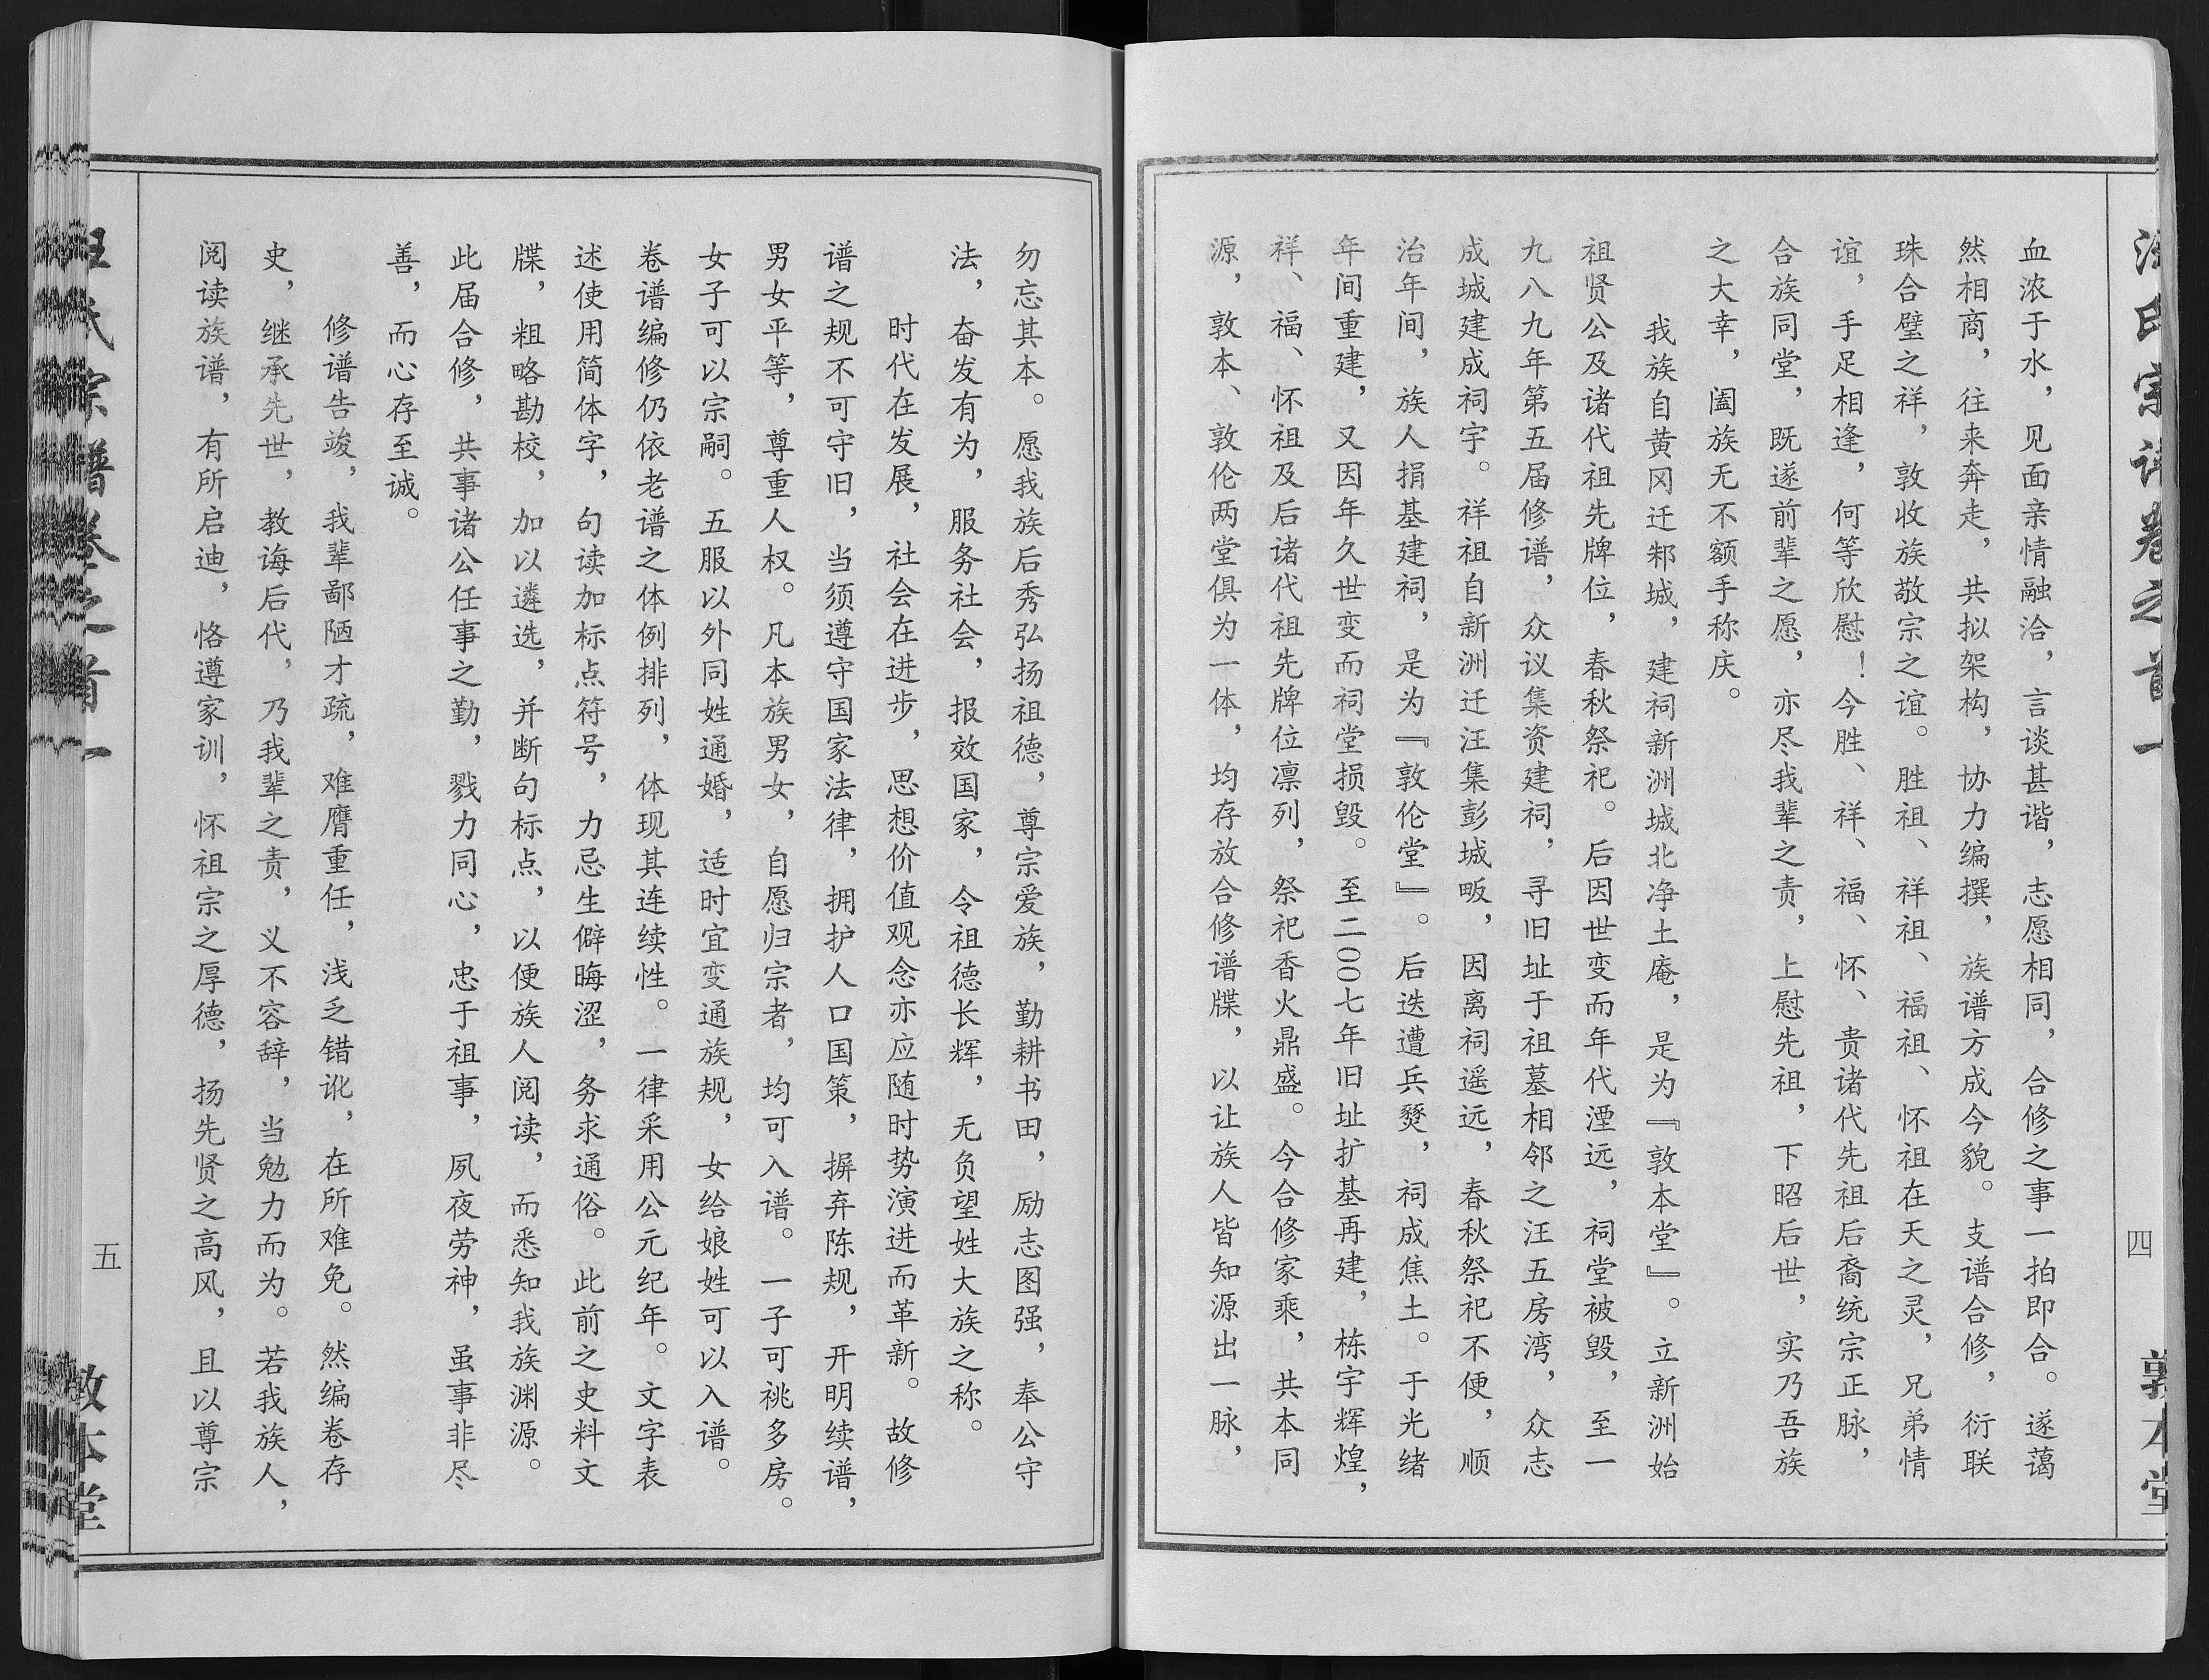 汪氏宗谱卷之首一
四
敦本堂
血浓于水，见面亲情融洽，言谈甚谐，志愿相同，合修之事一拍即合。遂蔼
然相商，往来奔走，共拟架构，协力编撰，族谱方成今貌。支谱合修，衍联
珠合璧之祥，敦收族敬宗之谊。胜祖、祥祖、福祖、怀祖在天之灵，兄弟情
谊，手足相逢，何等欣慰！今胜、祥、福、怀、贵诸代先祖后裔统宗正脉，
合族同堂，既遂前辈之愿，亦尽我辈之责，上慰先祖，下昭后世，实乃吾族
之大幸，阖族无不额手称庆。
我族自黄冈迁邾城，建祠新洲城北净土庵，是为『敦本堂』。立新洲始
祖贤公及诸代祖先牌位，春秋祭祀。后因世变而年代湮远，祠堂被毁，至一
九八九年第五届修谱，众议集资建祠，寻旧址于祖墓相邻之汪五房湾，众志
成城建成祠宇。祥祖自新洲迁汪集彭城畈，因离祠遥远，春秋祭祀不便，顺
治年间，族人捐基建祠，是为『敦伦堂』。后迭遭兵燹，祠成焦土。于光绪
年间重建，又因年久世变而祠堂损毁。至二00七年旧址扩基再建，栋宇辉煌，
祥、福、怀祖及后诸代祖先牌位凛列，祭祀香火鼎盛。今合修家乘，共本同
源，敦本、敦伦两堂俱为一体，均存放合修谱牒，以让族人皆知源出一脉，
勿忘其本。愿我族后秀弘扬祖德，尊宗爱族，勤耕书田，励志图强，奉公守
法，奋发有为，服务社会，报效国家，令祖德长辉，无负望姓大族之称。
时代在发展，社会在进步，思想价值观念亦应随时势演进而革新。故修
谱之规不可守旧，当须遵守国家法律，拥护人口国策，摒弃陈规，开明续谱，
男女平等，尊重人权。凡本族男女，自愿归宗者，均可入谱。一子可祧多房。
女子可以宗嗣。五服以外同姓通婚，适时宜变通族规，女给娘姓可以入谱。
卷谱编修仍依老谱之体例排列，体现其连续性。一律采用公元纪年。文字表
述使用简体字，句读加标点符号，力忌生僻晦涩，务求通俗。此前之史料文
牒，粗略勘校，加以遴选，并断句标点，以便族人阅读，而悉知我族渊源。
此届合修，共事诸公任事之勤，戮力同心，忠于祖事，夙夜劳神，虽事非尽
善，而心存至诚。
修谱告竣，我辈鄙陋才疏，难膺重任，浅乏错讹，在所难免。然编卷存
史，继承先世，教诲后代，乃我辈之责，义不容辞，当勉力而为。若我族人，
阅读族谱，有所启迪，恪遵家训，怀祖宗之厚德，扬先贤之高风，且以尊宗
汪氏宗谱卷之首一
五
敦本堂